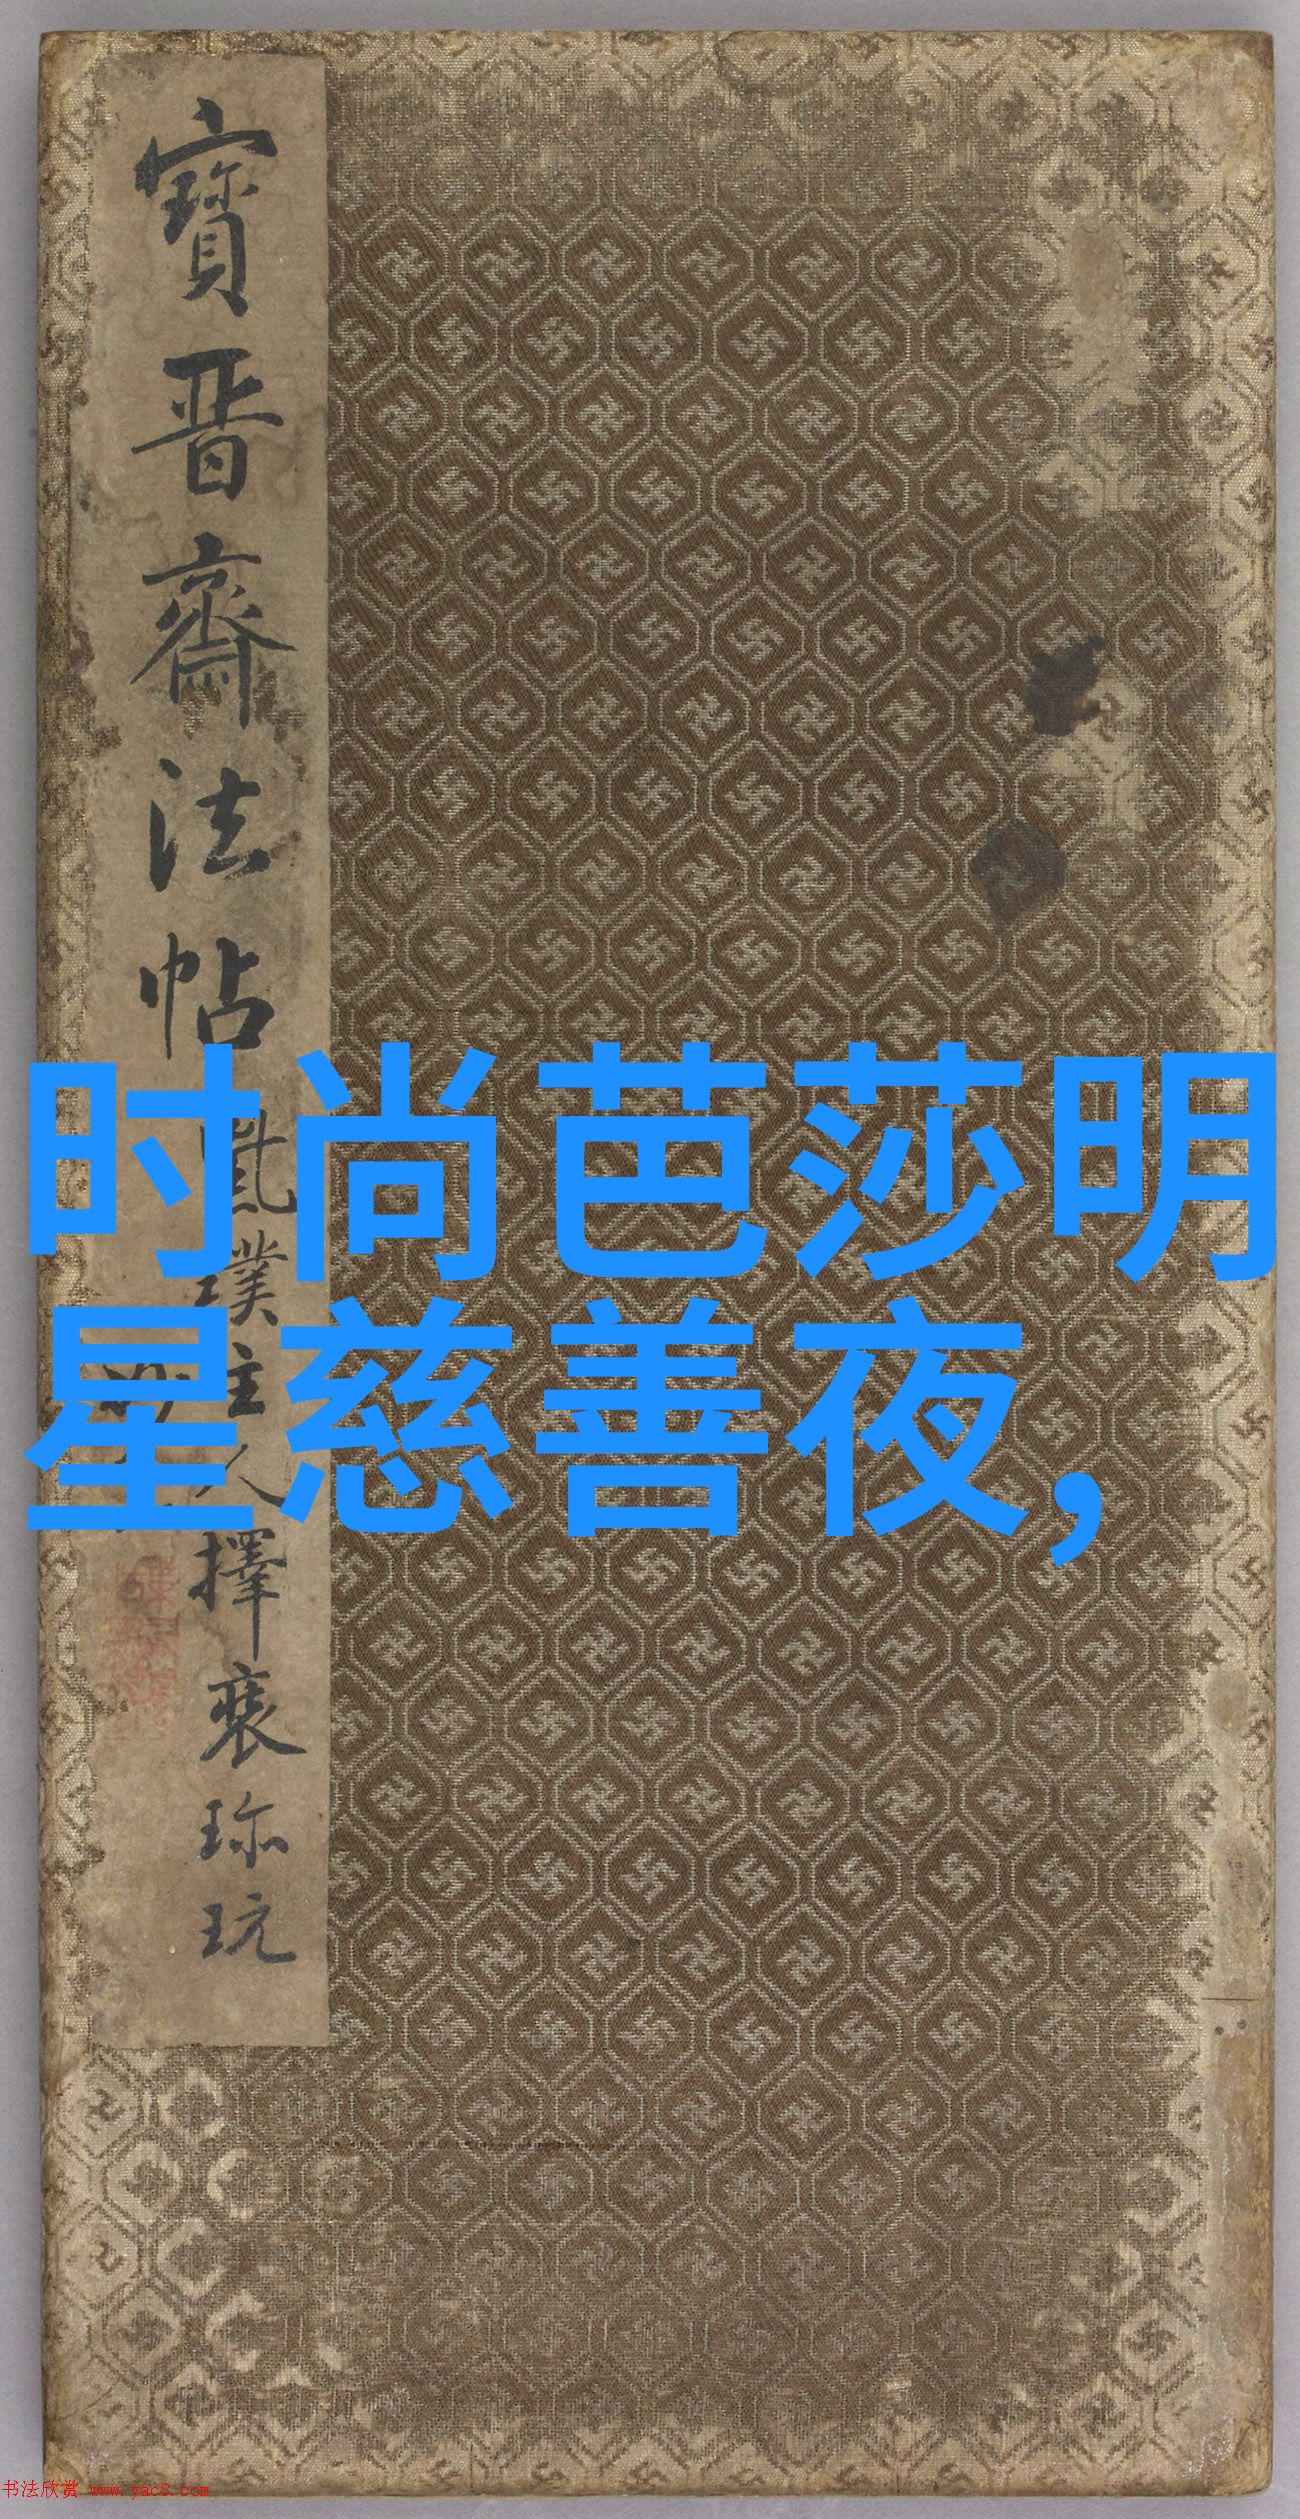 寶晉齋法帖
主人擇裘珎玩
时尚芭莎明
星慈善夜,
书法欣赏 www.yac8.com